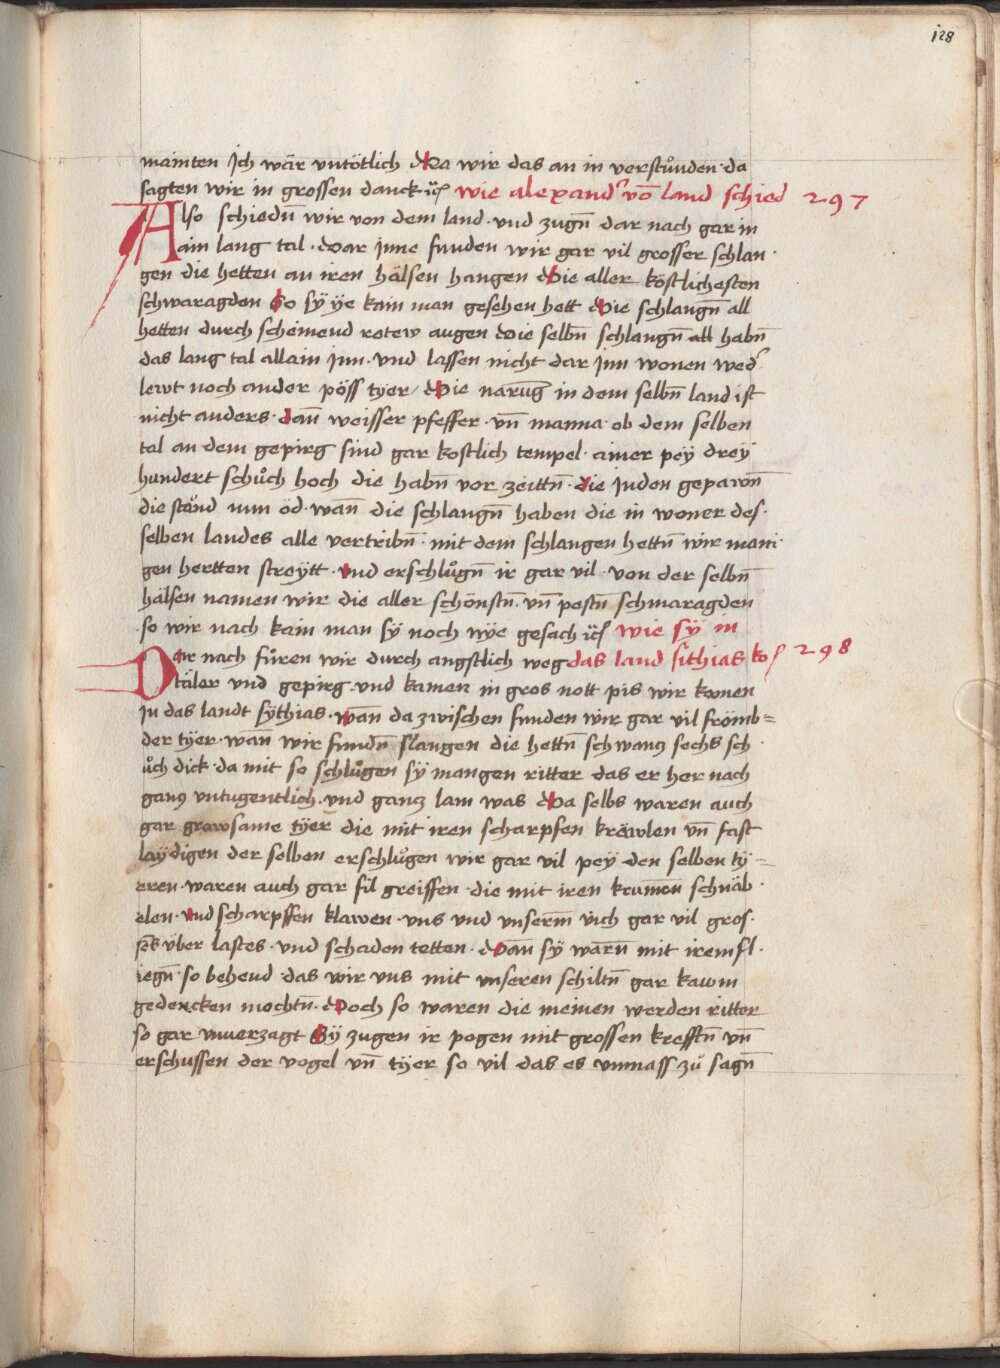 128
mainten Jch wär vntötlich Da wir das an in verstůnden · da
sagten wir in grossen danck ꝛc̃ wie alexand᷑ võ land schied 297
Also schiedn̄ wir von dem land · vnd zugn̄ dar nach gar in
ain lang tal · Dar jnne funden wir gar vil grosser schlan ·
gen die hetten an iren hälsen hangen Die aller köstlichesten
schwaragden So sÿ ÿe kain man gesehen hett Die schlangn̄ all
hetten durch scheinend rotew augen Die selbn̄ schlangn̄ all habn̄
das lang tal allain Jnn · vnd lassen nicht dar Jnn wonen wed᷑
lewt noch ander pöss tyer / Die narūg in dem selbn̄ land ist
nicht anders · dan̄ weisser pfeffer · vn̄ manna · ob dem selben
tal an dem gepirg sind gar kostlich tempel · ainer peÿ dreÿ
hundert schůch hoch die habn̄ vor zeittn̄ · die Juden gepawn̄
die ständ nun öd · wan̄ die schlangn̄ haben die in woner des ·
selben landes alle vertribn̄ · mit dem schlangen hettn̄ wir mani ·
gen hertten streÿtt · vnd erschlůgn̄ ir gar vil · von der selbn̄
hälsen namen wir die aller schönstn̄ · vn̄ pestn̄ schmaragden
so wir nach kain man sÿ noch nÿe gesach ꝛc̃ wie sÿ in
Dar nach fůren wir durch angstlich weg das land sithias ko 298
täler vnd gepirg · vnd kamen in gros nott pis wir komen
Jn das landt sÿthias · wan̄ da zwischen funden wir gar vil frömb=
der tÿer · wan̄ wir fundn̄ slangen die hettn̄ schwanꝫ sechs sch ·
ůch dick · da mit so schlůgen sÿ mangen ritter das er her nach
ganꝫ vntugentlich · vnd gancz lam was Da selbs waren auch
gar grawsame tÿer die mit iren scharpfen kräwlen vn̄ fast
laÿdigen der selben erschlůgen wir gar vil peÿ den selben tÿ=
eren · waren auch gar fil greiffen · die mit iren krumen schnäb ·
elen · vnd scharpffen klawen · vns vnd vnserm̄ vich gar vil gros ·
ses über lastes · vnd schaden tetten · Dan̄ sÿ warn̄ mit irem fl ·
iegn̄ · so behend · das wir vns mit vnseren schiltn̄ gar kawm
gedencken mochtn̄ · Doch so waren die meinen werden ritter
so gar vnuerzagt Sÿ zugen ir pogen mit grossen krefftn̄ vn̄
erschussen der vogel vn̄ tÿer so vil das es vnmass zů sagn̄